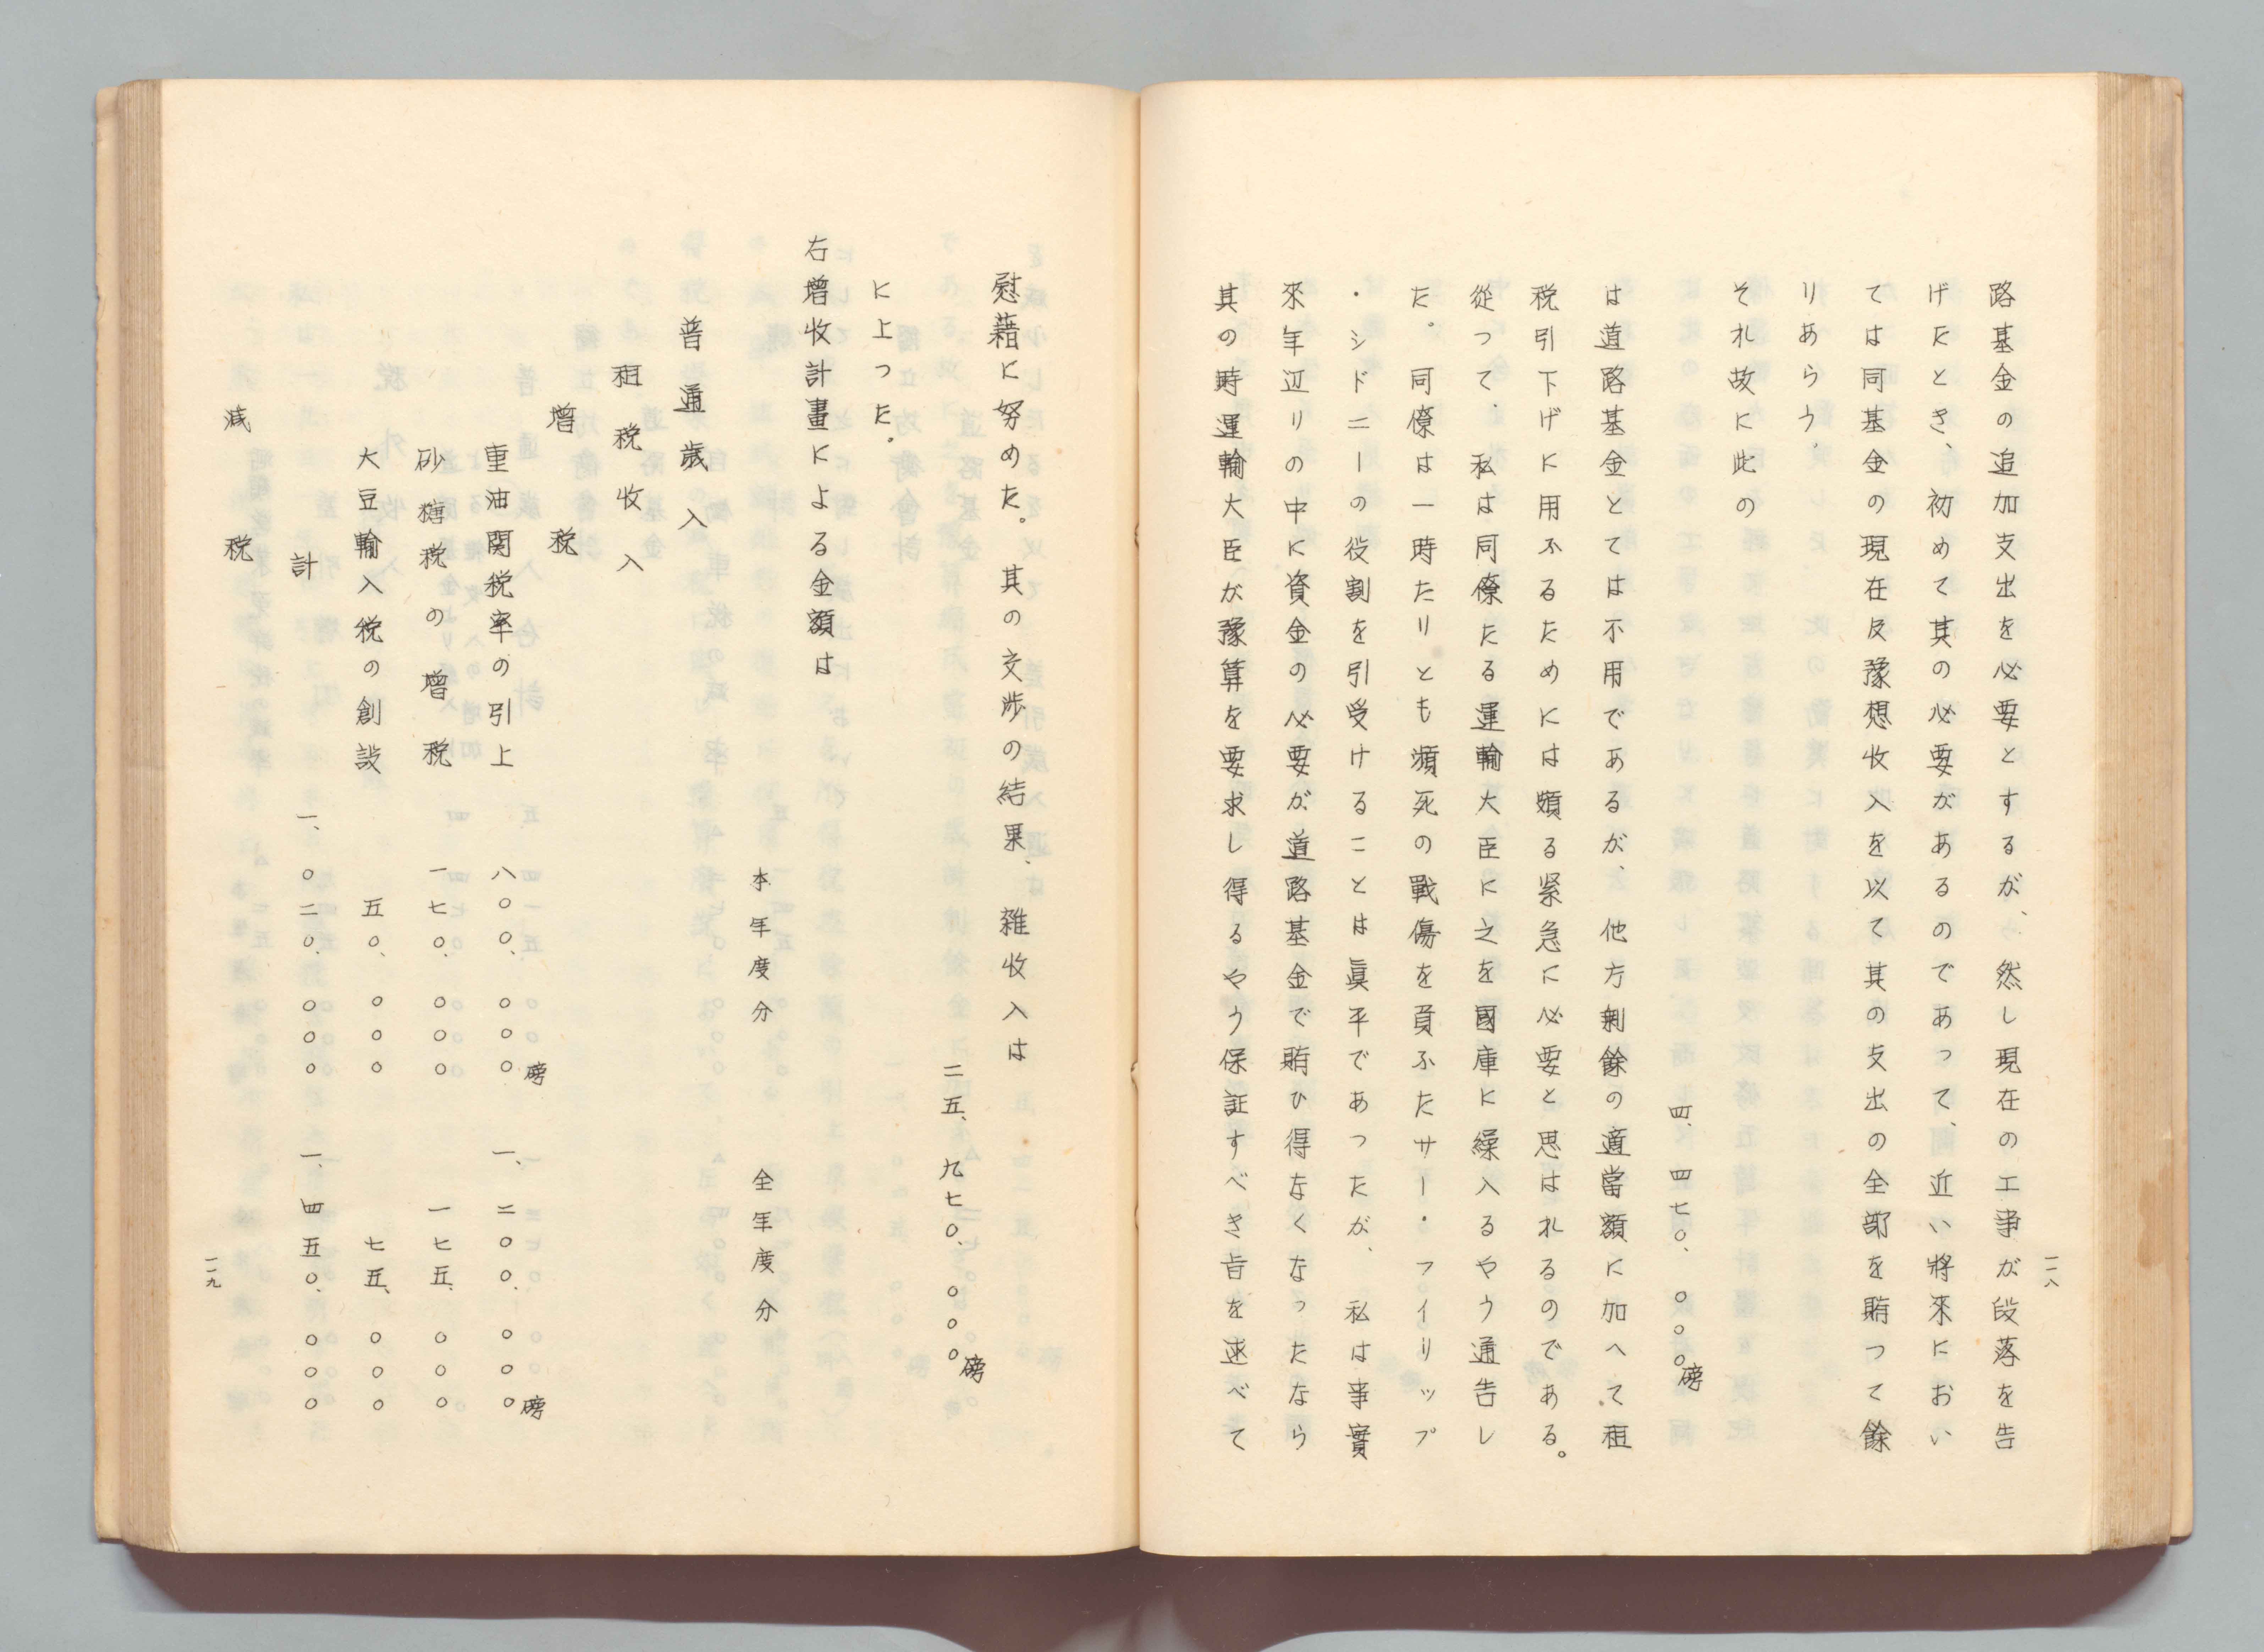 一一八
路基金の追加支出を必要とするが、然し現在の工事が段落を告
げたとき、初めて其の必要があるのであって、近い將來におい
ては同基金の現在及豫想收入を以て其の支出の全部を賄って餘
りあらう。
それ故に此の
四、四七〇、〇〇〇磅
は道路基金としては不用であるが、他方剰餘の適當額に加へて租
税引下げに用ふるためには頗る緊急に必要と思はれるのである。
從つて、私は同僚たる運輸大臣に之を國庫に繰入るやう通告し
た。同僚は一時たりとも瀕死の戰傷を負ふたサー・フイリップ
・シドニーの役割を引受けることは眞平であったが、私は事實
來年辺りの中に資金の必要が道路基金で賄ひ得なくなったなら
其の時運輸大臣が豫算を要求し得るやう保証すべき旨を述べて
慰藉に努めた。其の交渉の結果、雑收入は
二五、九七〇、〇〇〇磅
に上った。
右增收計畫による金額は
本年度分　全年度分
普通歳入
租税收入
增税
重油関税率の引上　八〇〇、〇〇〇磅　一、二〇〇、〇〇〇磅
砂糖税の增税　一七〇、〇〇〇　一七五、〇〇〇
大豆輸入税の創設　五〇、〇〇〇　七五、〇〇〇
計　一、〇二〇、〇〇〇　一、四五〇、〇〇〇
減税
一一九